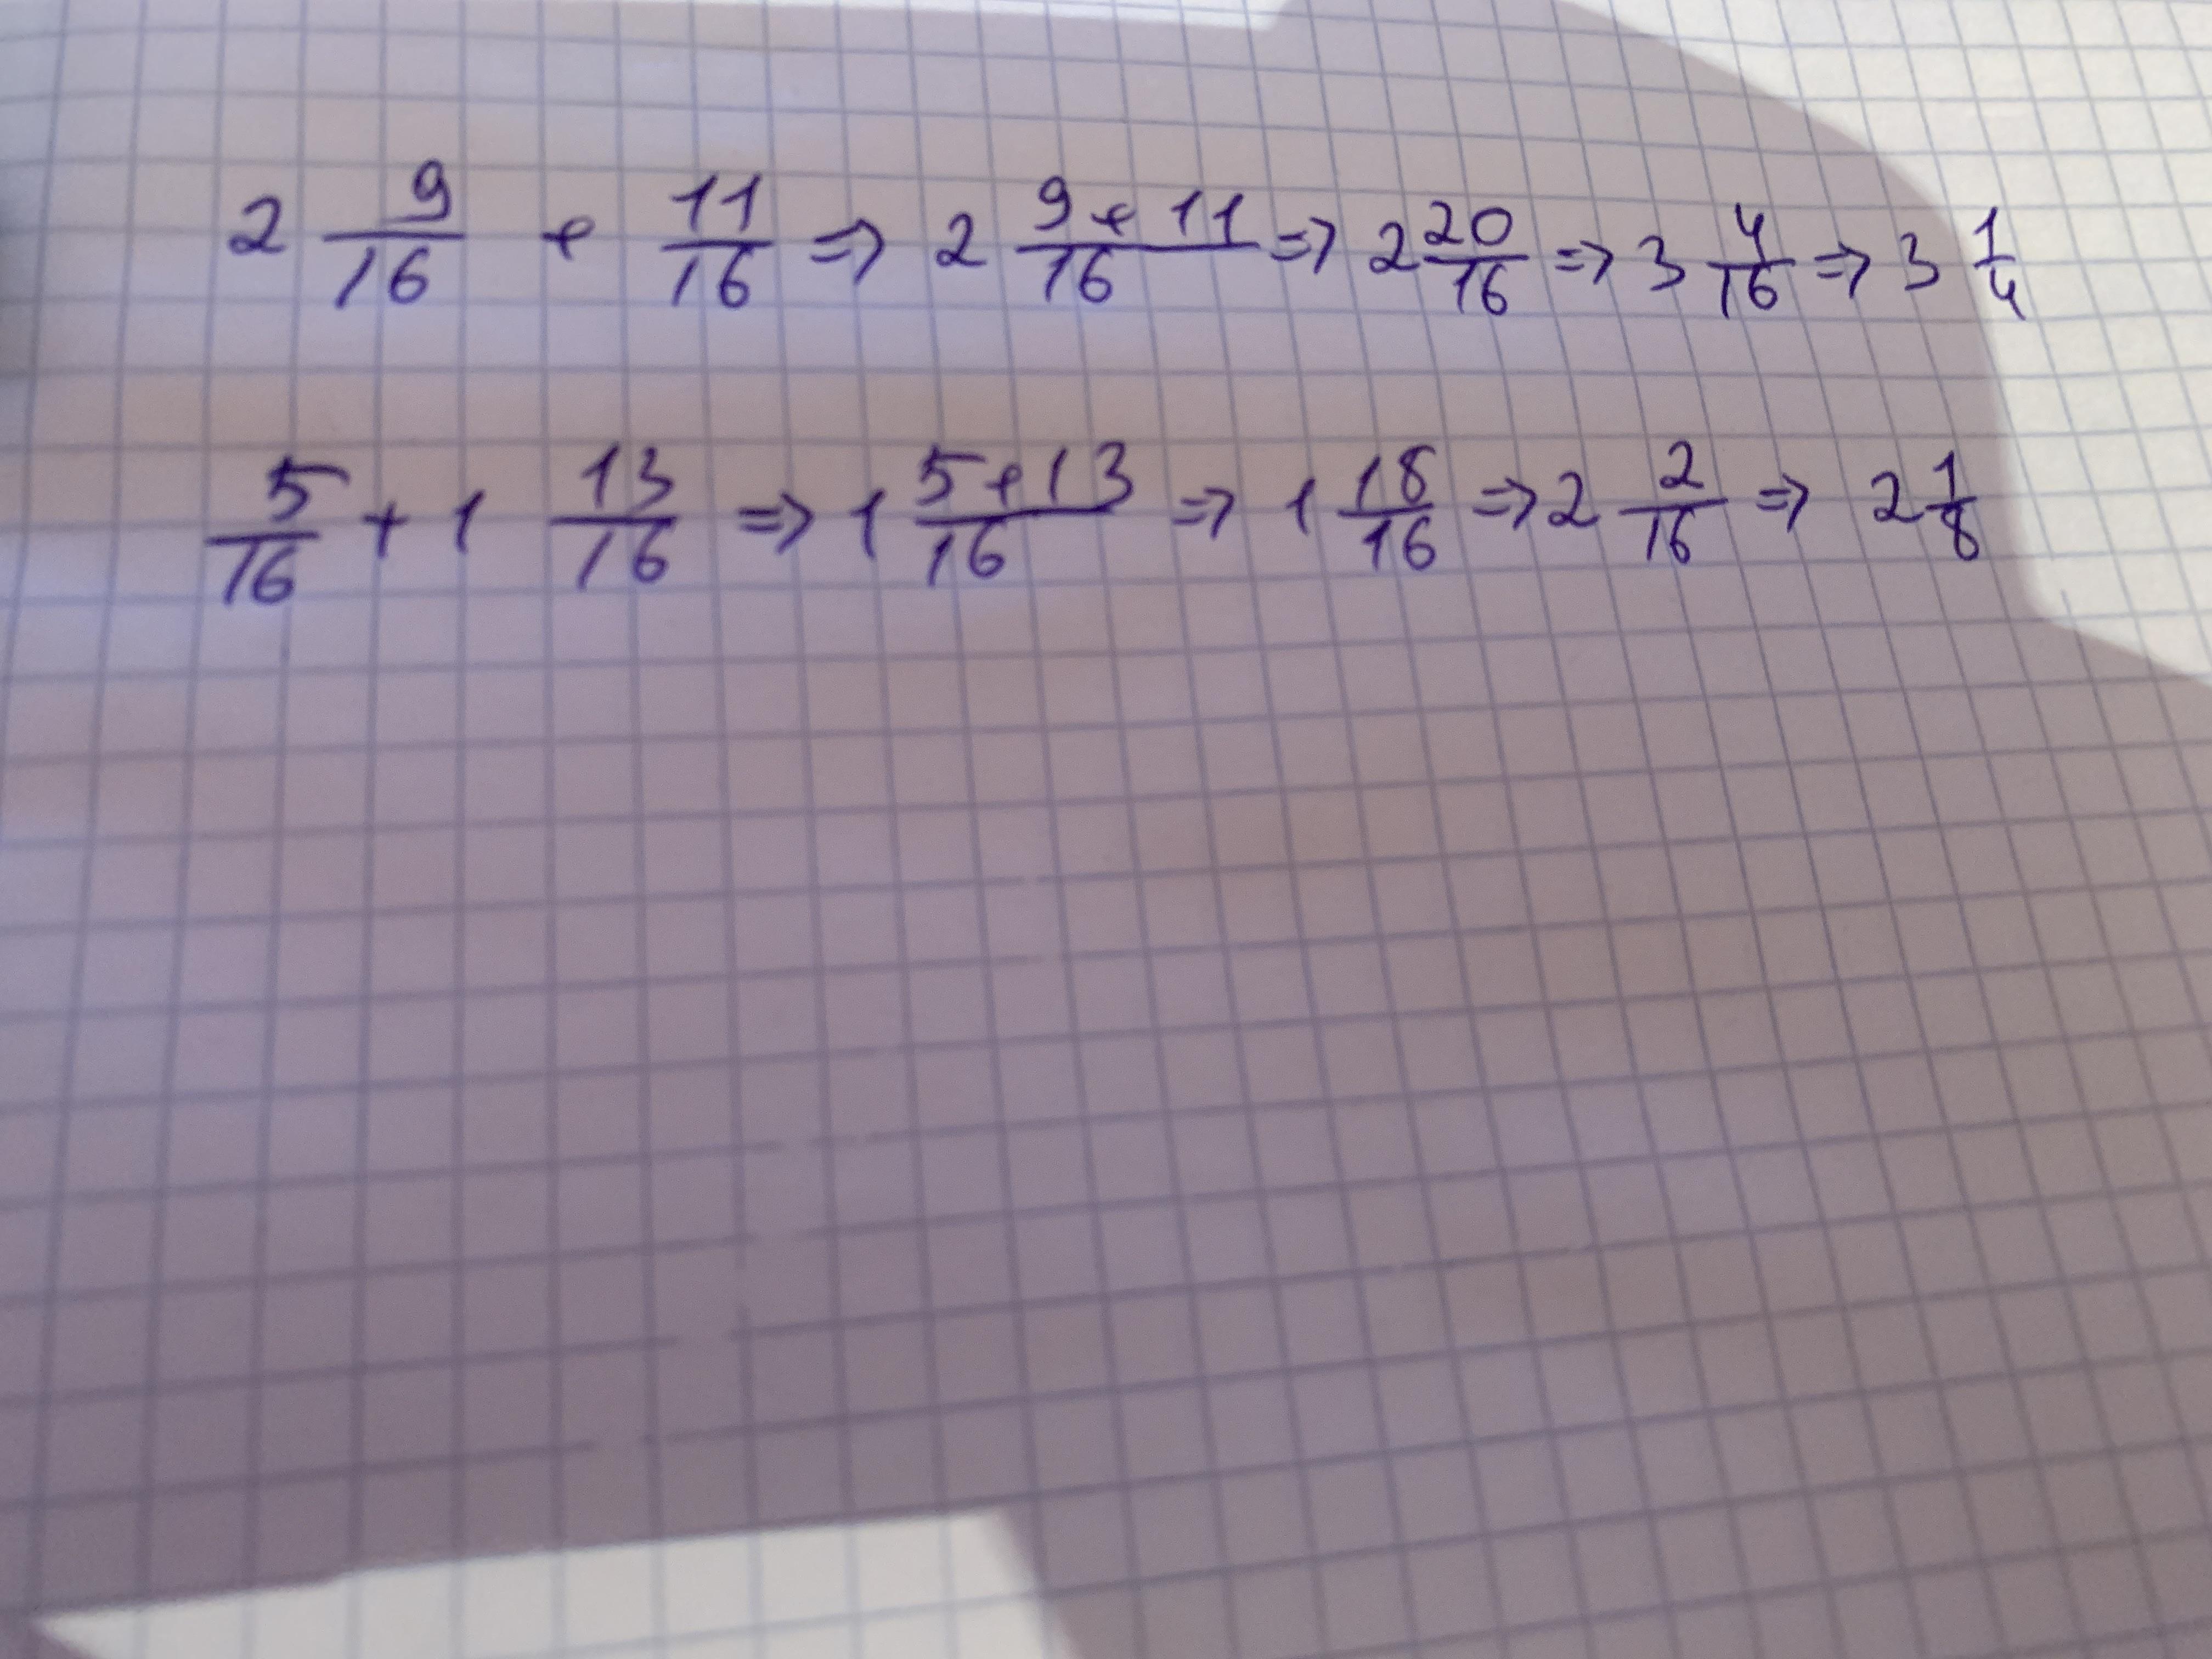 2 9/16 + 11/16 => 2 9+11/16 => 2 20/16 => 3 4/16 => 3 1/4
5/16 + 1 13/16 => 1 5+13/16 => 1 18/16 => 2 2/16 => 2 1/8